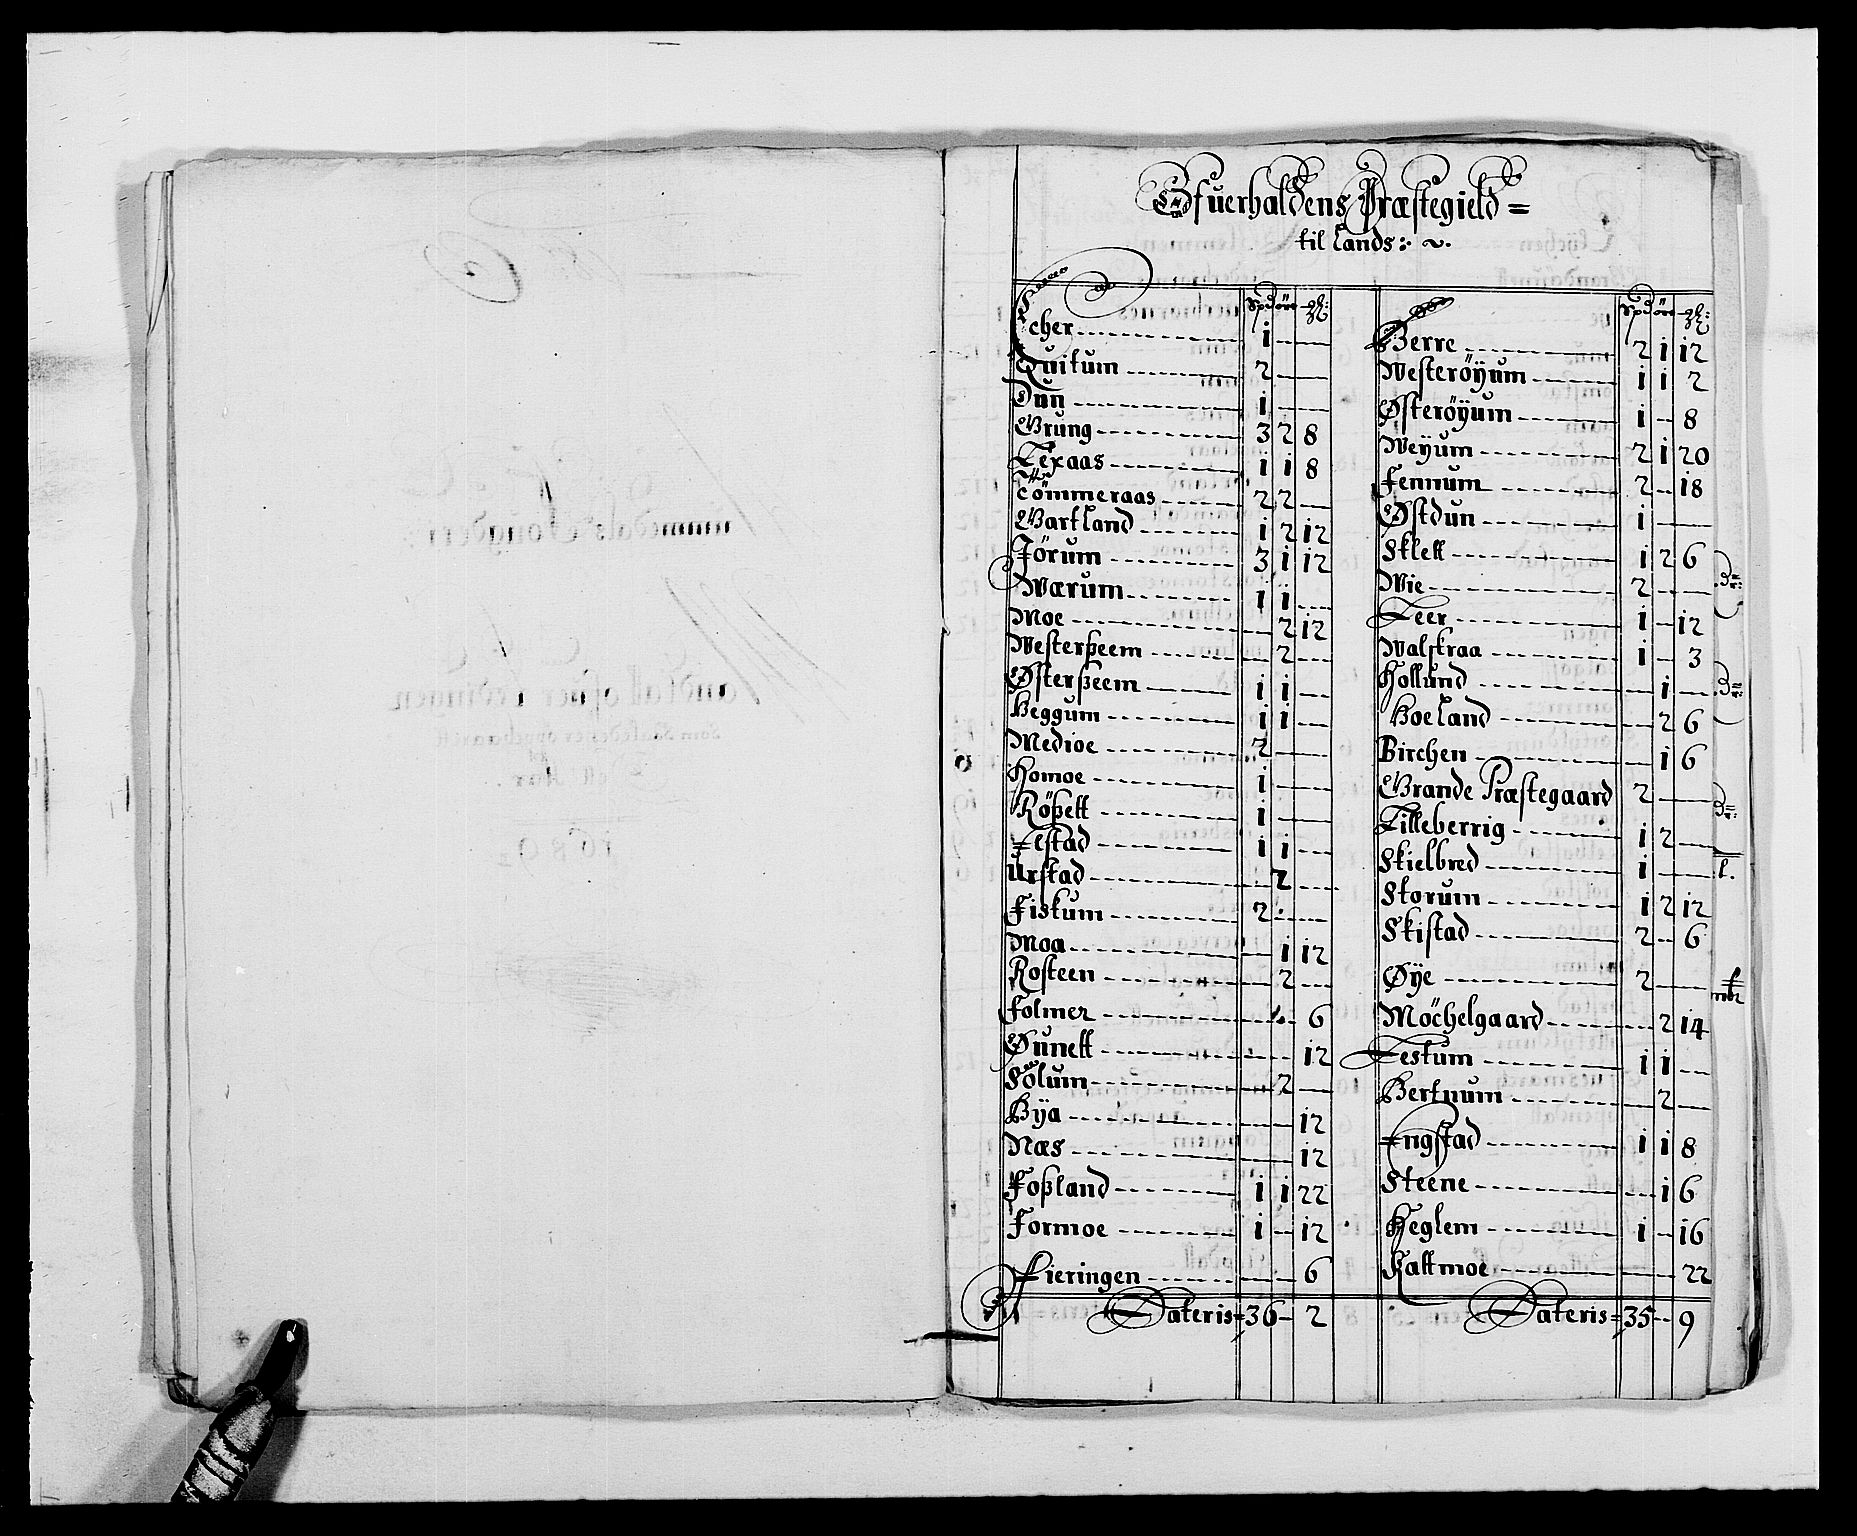 Ofuerhaldens Præstegield =
til Lands: ~.
Spd öre mk:
Echer 1
Quitum 2
Dun 1
Grung 3 2 8
Texaas 1 1 8
Tömmeraas 2 2
Gartland 1 2 12
Jörum 3 1 12
Wærum 1 1
Moe 2 12
Westerßeem 2
Østerßeem 1 1
Heggum 1 1
Medioe 2
Homoe 1
Rößett 1
Elstad 1 1
Urstad 2
Fiskum 2
Moa 1 12
Rosteen 2
Folmer 6
Øunett 12
Sölum 2
Bÿa 12
Næs 12
Foßland 1 1 22
Formoe 1 12
Fieringen 6
Lateris = 36 - 2
Spd öre mk:
Berre 2 1 12
Westeröÿum 1 1 2
Østeröÿum 1 8
Weÿum 2 1 20
Fennum 2 18
Østdun 1
Sklett 1 2 6
Wie 2
Leer 1 12
Walskraa 1 3
Hollund 1
Hoeland 2 6
Birchen 1 6
Grande Præstegaard 2
Lilleberrig 1 2
Skielbred 1
Storum 1 2 12
Skistad 2 6
Øÿe 2
Möchelgaard 2 14
Festum 1 1
Bertnum 2
Engstad 1 1 8
Steene 1 6
Heglem 1 16
Haltmoe 22
Lateris = 35 - 9